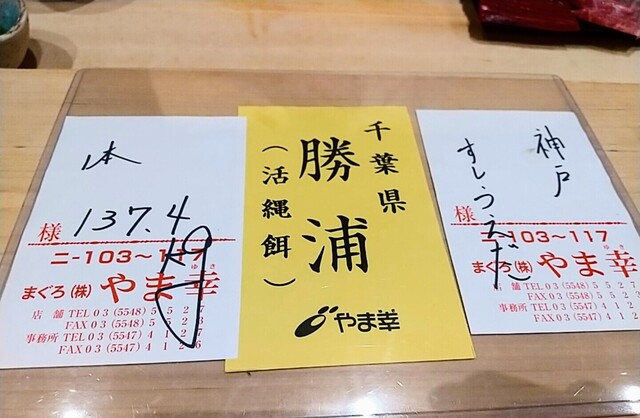 本
137.4
様
ニ-103~117
まぐろ(株)やま幸
ゆき
店舗 TEL 03 (5548) 5527
FAX 03 (5548) 5528
事務所 TEL 03 (5547) 4127
FAX 03 (5547) 4126
千葉県
勝浦
(活縄餌)
やま幸
神戸
すしうえだ
様
ニ-103~117
まぐろ(株)やま幸
ゆき
店舗 TEL 03 (5548) 5527
FAX 03 (5548)
事務所 TEL 03 (5547) 412
FAX 03 (5547) 412